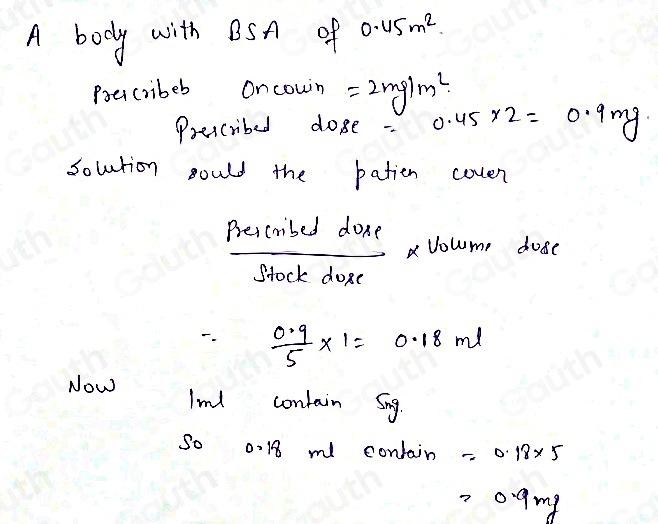 A body with BSA of 0.45m².
Prescribeb Oncowin = 2mg/m².
Prescribed dose = 0.45 × 2 = 0.9mg.
Solution sould the patien cover
Prescribed dose / Stock dose × Volume dose
∴ 0.9/5 × 1 = 0.18 ml
Now 1ml contain 5mg.
So 0.18 ml contain = 0.18×5
= 0.9mg